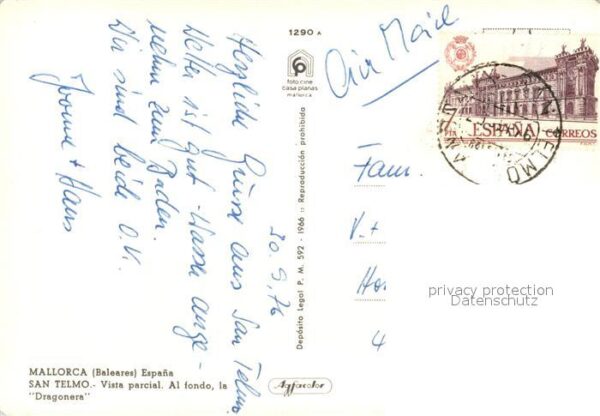 1290 A
foto cine
casa planas
mallorca
Air Mail
ESPAÑA
CORREOS
TELMO
20.9.76
Herzliche Grüsse aus San Telmo
Wetter ist gut - Wasser ange-
nehm zum Baden.
Wir sind beide O.K.
Yvonne + Hans
Depósito Legal P. M. 592 - 1966 :: Reproducción prohibida
Fam.
V. +
Ho
4
privacy protection
Datenschutz
MALLORCA (Baleares) España
SAN TELMO.- Vista parcial. Al fondo, la
"Dragonera"
Agfacolor